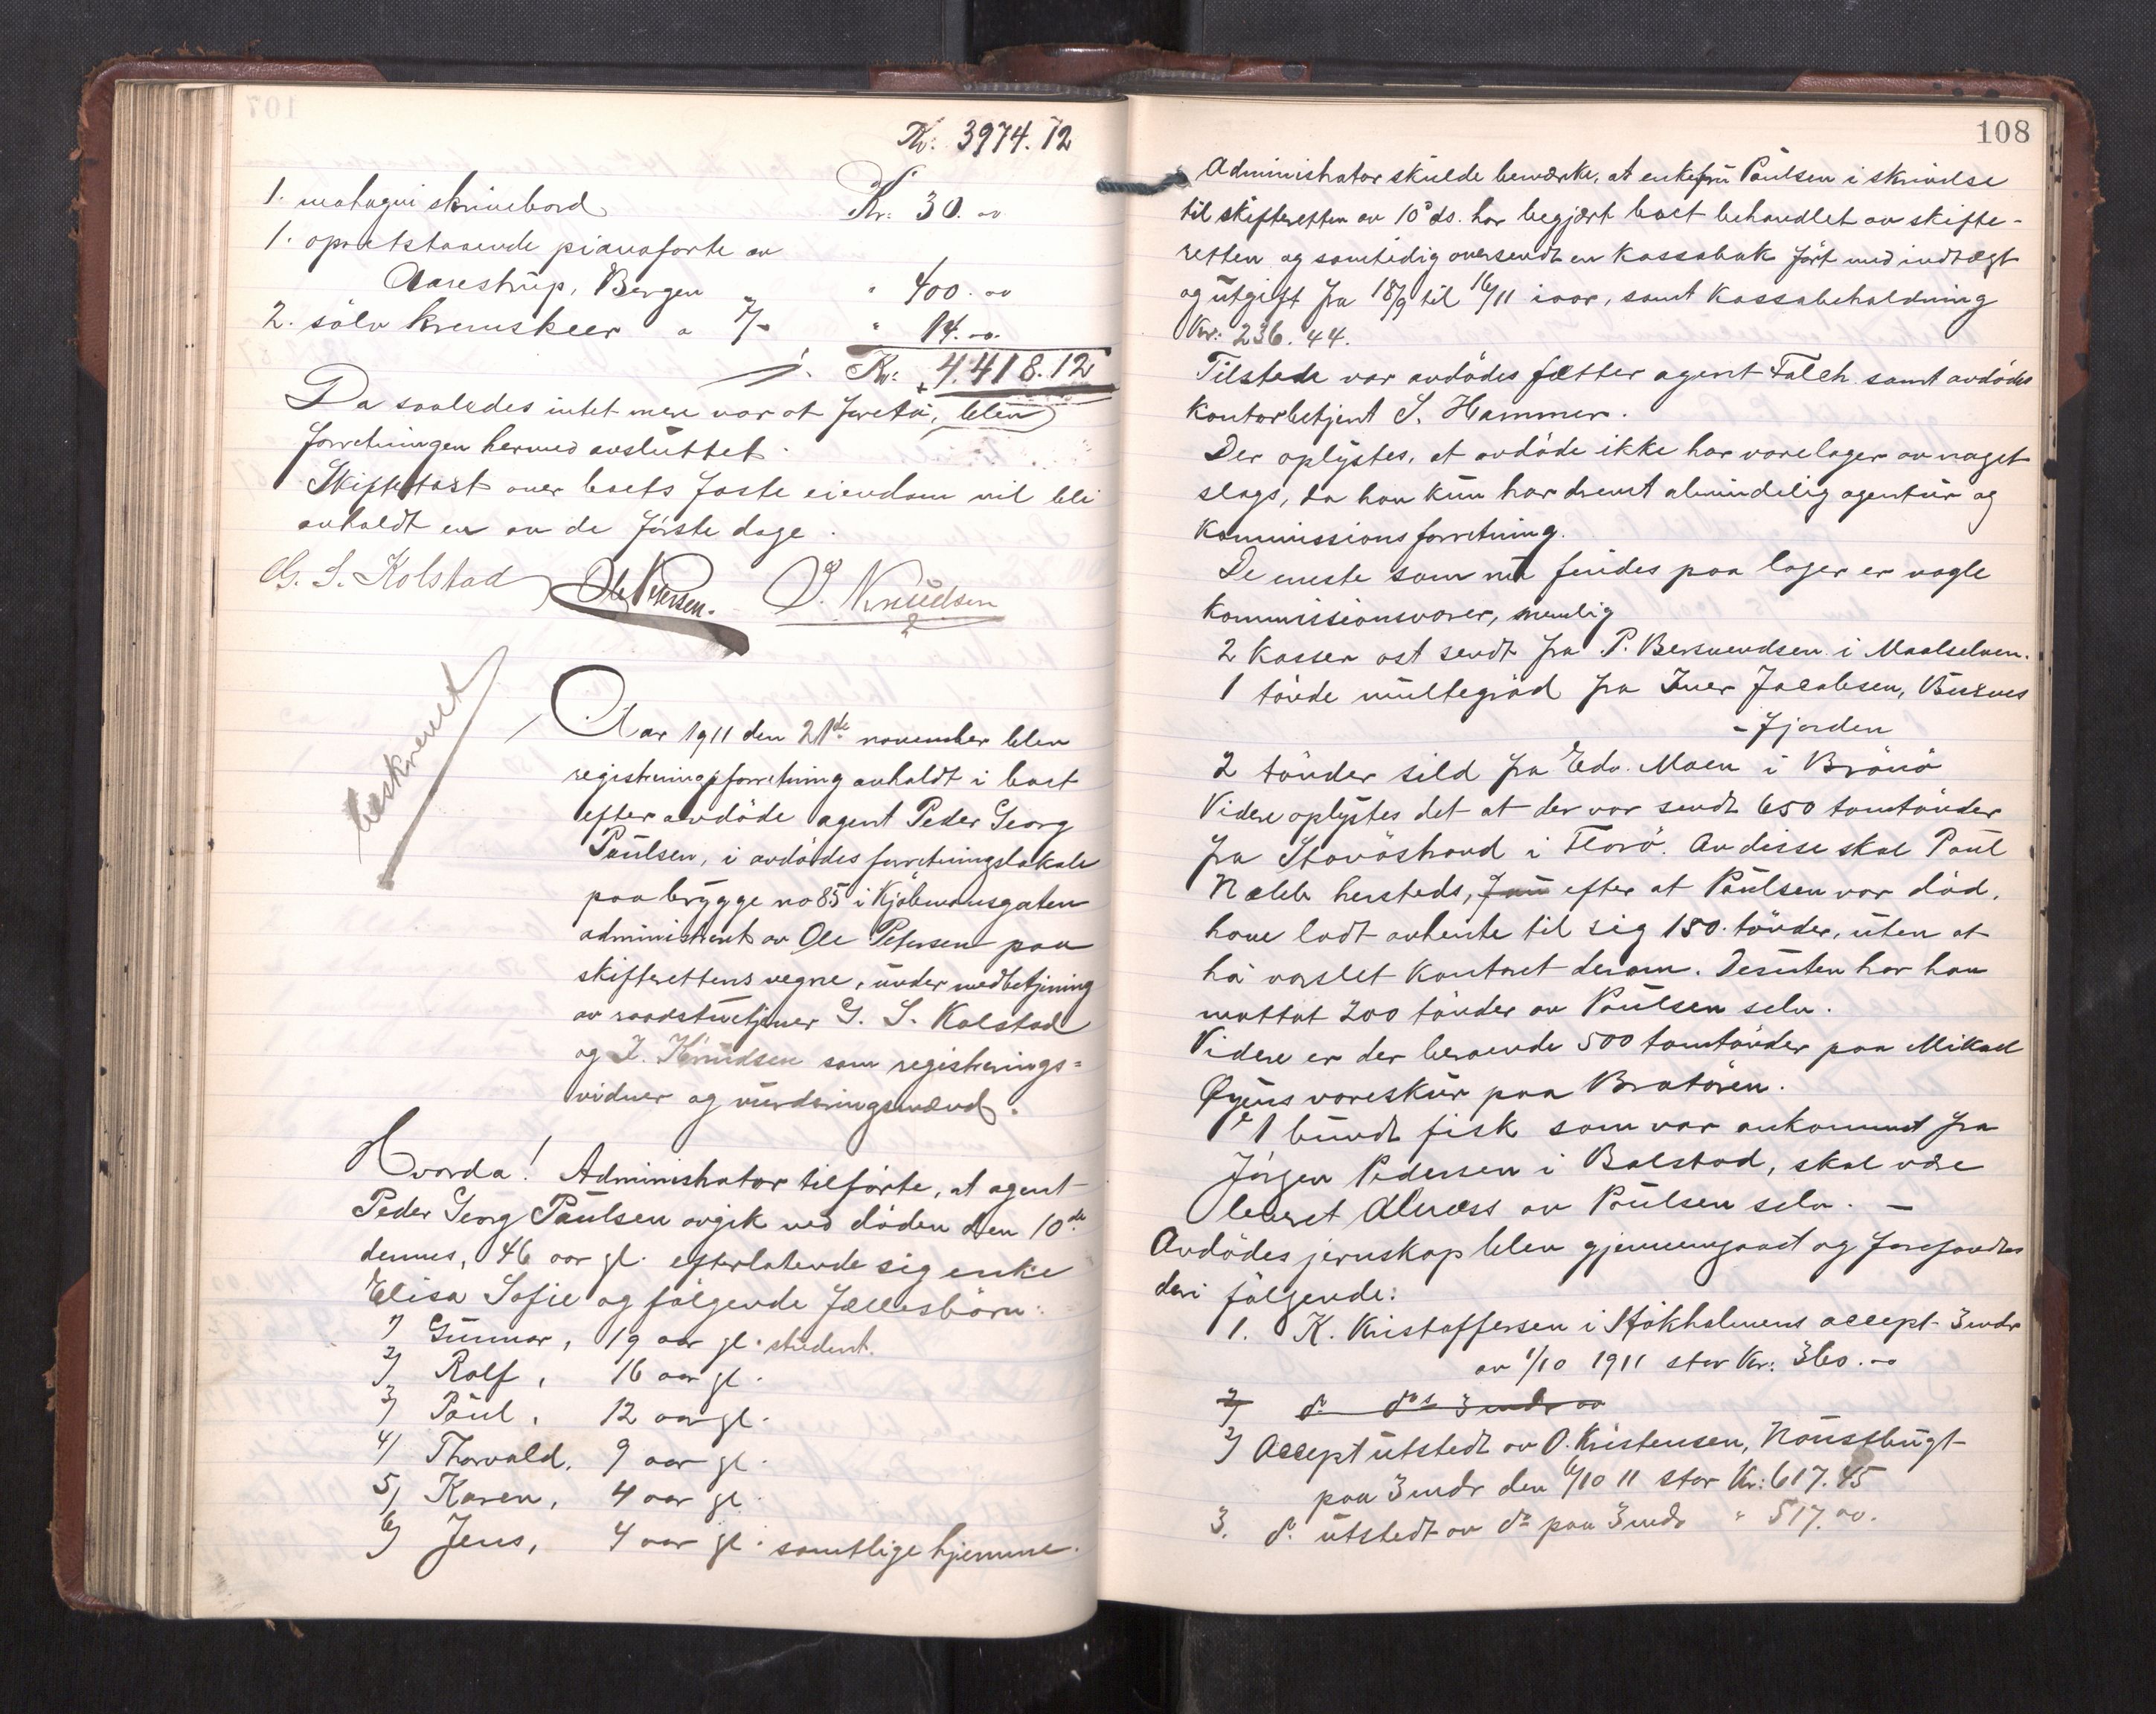 Kr: 3974.12
1. mahogni skrivebord Kr: 30.00
1. opretstaaende pianoforte av
Aarestrup, Bergen " 400.00
2. sölv kremskeer a 7/- " 14.00
Kr: 4.418.12
Da saaledes intet mere var at foreta, blev
forretningen hermed avsluttet.
Skiftetakst over boets faste eiendom vil bli
avholdt en av de förste dage.
G. S. Kolstad Ole Petersen. J. Knudsen
beskrevet
Aar 1911 den 21de november blev
registreringsforretning avholdt i boet
efter avdöde agent Peder Georg
Paulsen, i avdödes forretningslokale
paa brygge no 85 i Kjöbmansgaten
administrert av Ole Petersen paa
skifterettens vegne, under medbetjening
av raadstuetjener G. S. Kolstad
og J. Knudsen som registrerings-
vidner og vurderingsmænd.
Hvorda! Administrator tilförte, at agent
Peder Georg Paulsen avgik ved döden den 10de
dennes, 46 aar gl. efterlatende sig enke
Elisa Sofie og fölgende fællesbörn:
1) Gunnar, 19 aar gl. student.
2) Rolf, 16 aar gl.
3) Paul, 12 aar gl.
4) Thorvald, 9 aar gl.
5) Karen, 4 aar gl.
6) Jens, 4 aar gl. samtlige hjemme.
108
Administrator skulde bemærke, at enkefru Paulsen i skrivelse
til skifteretten av 10 ds. har begjært boet behandlet av skifte-
retten og samtidig oversendt en kassabok fört med indtægt
og utgift fra 18/9 til 16/11 iaar, samt kassabeholdning
Kr: 236.44.
Tilstede var avdödes fætter agent Falch samt avdödes
kontorbetjent S. Hammer.
Der oplystes, at avdöde ikke har varelager av noget
slags, da han kun har drevet almindelig agentur og
kommissionsforretning.
De eneste som nu findes paa lager er nogle
kommissionsvarer, nemlig
2 kasser ost sendt fra P. Bersvendsen i Maalselven.
1 tönde multegröd fra Iver Jacobsen,
-fjorden
2 tönder sild fra Edv. Moen i Brönö
Videre oplystes det at der var sendt 650 tomtönder
fra Stavöstrand i Florö. Av disse skal Paul
Nebb hersteds, efter at Paulsen var död,
have ladt avhente til sig 150 tönder, uten at
ha varslet kontoret derom. Desuten har han
mottat 200 tönder av Paulsen selv.
Videre er der beroende 500 tomtönder paa Mikael
Øyens vareskur paa Bratören.
1 bundt fisk som var ankommet fra
Jörgen Pedersen i Balstad, skal være
levert Alnæss av Paulsen selv. —
Avdödes jernskap blev gjennemgaaet og forefandtes
deri fölgende:
1. K. Kristoffersen i Stokholmens accept 3 mdr
av 1/10 1911 stor Kr: 360.00
2) do do's 3 mdr av
2) Accept utstedt av O. Kristensen,
paa 3 mdr den 6/10 11 stor Kr: 617.45
3. do utstedt av do paa 3 mdr " 517.00.